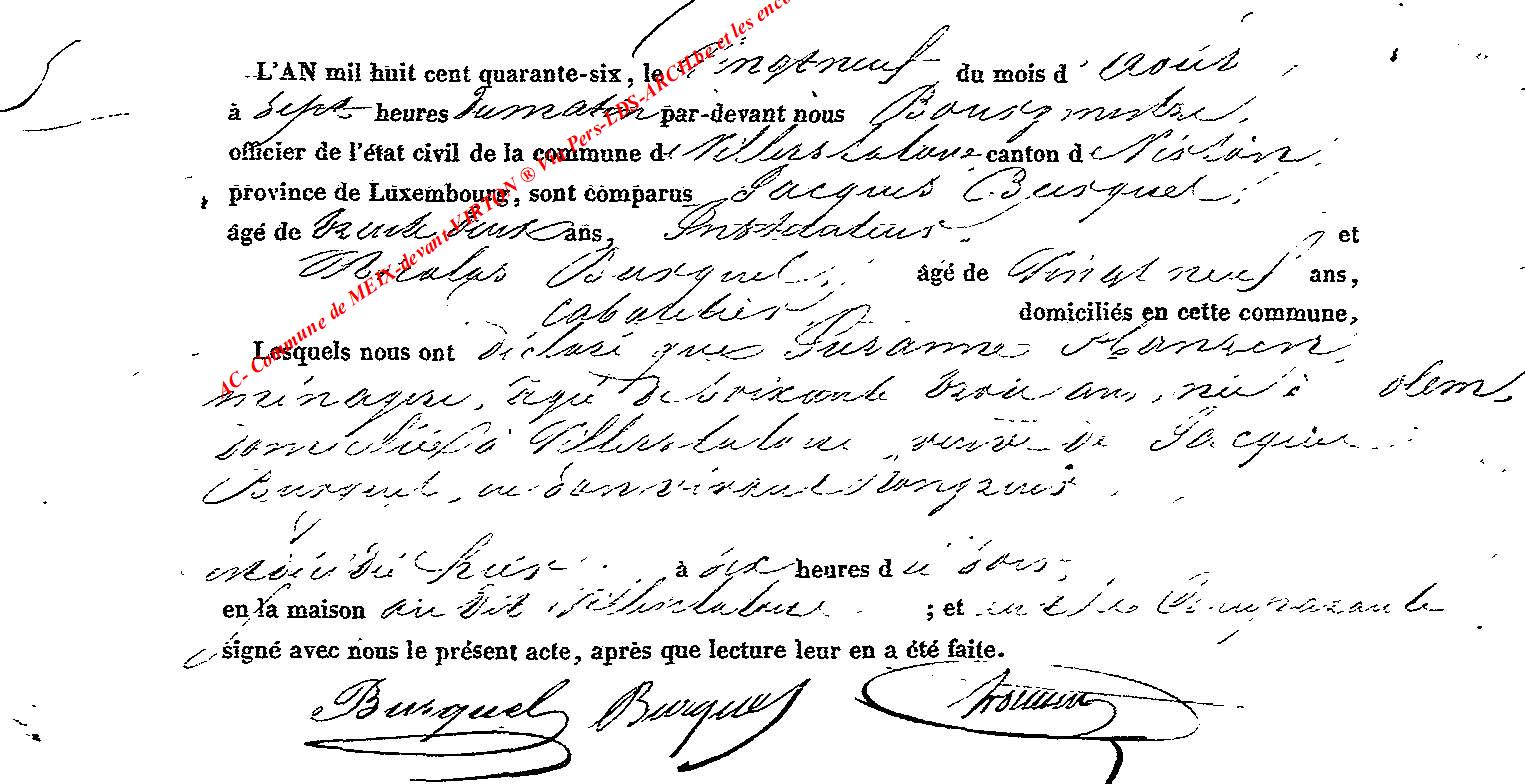 L'AN mil huit cent quarante-six, le Vingt neuf du mois d'Août
à Sept heures Du matin par-devant nous Bourgmestre,
officier de l'état civil de la commune de Villers la loue canton de Virton,
province de Luxembourg, sont comparus Jacques Burquel,
âgé de trente Deux ans, Instituteur et
Nicolas Burquel, âgé de Vingt neuf ans,
cabaretier, domiciliés en cette commune,
Lesquels nous ont déclaré que Suzanne Hansen,
ménagère, agée de Soixante trois ans, née à olem,
Domiciliée à Villers la loue, veuve de Jacques
Burquel, en Son vivant
décédée hier à Six heures du Soir,
en sa maison au Dit Villers la loue ; et ont les Comparants
signé avec nous le présent acte, après que lecture leur en a été faite.
Burquel Burquel
AC- Commune de MEIX-devant-VIRTON ® Via Pers-LDS-ARCH.be et les enco